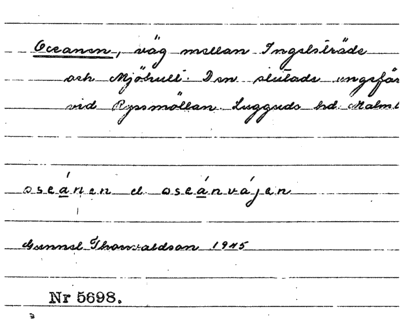 Oceanen, väg mellan Ingelsträde
och Mjöhult. Den slutade ungefär
vid Ryssmöllan. Luggude hd. Malm
oseánen el oseánvä́jen
Gunnel Thorvaldson 1945
Nr 5698.